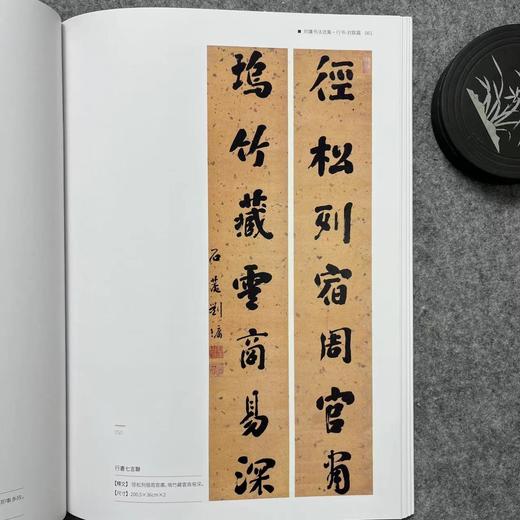 ■ 刘墉书法选集·行书·对联篇 061
徑松列宿周官肅
塢竹藏雲商易深
石菴劉墉
行書七言聯
【釋文】徑松列宿周官肅，塢竹藏雲商易深。
【尺寸】200.5×36cm×2